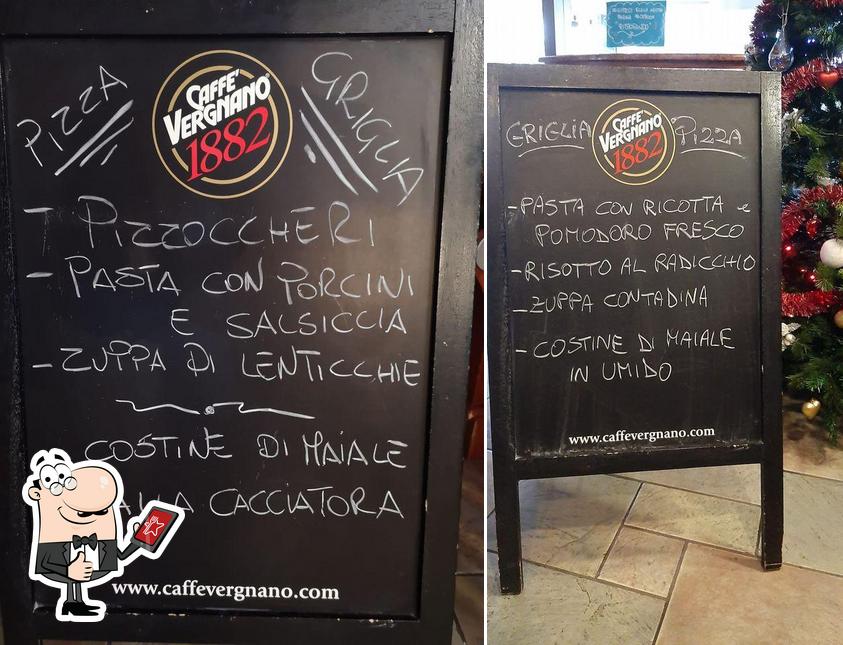 PIZZA
GRIGLIA
CAFFE'
VERGNANO
1882
- PIZZOCCHERI
- PASTA CON PORCINI
E SALSICCIA
- ZUPPA DI LENTICCHIE
COSTINE DI MAIALE
ALLA CACCIATORA
www.caffevergnano.com
GRIGLIA
PIZZA
CAFFE'
VERGNANO
1882
- PASTA CON RICOTTA e
POMODORO FRESCO
- RISOTTO AL RADICCHIO
- ZUPPA CONTADINA
- COSTINE DI MAIALE
IN UMIDO
www.caffevergnano.com